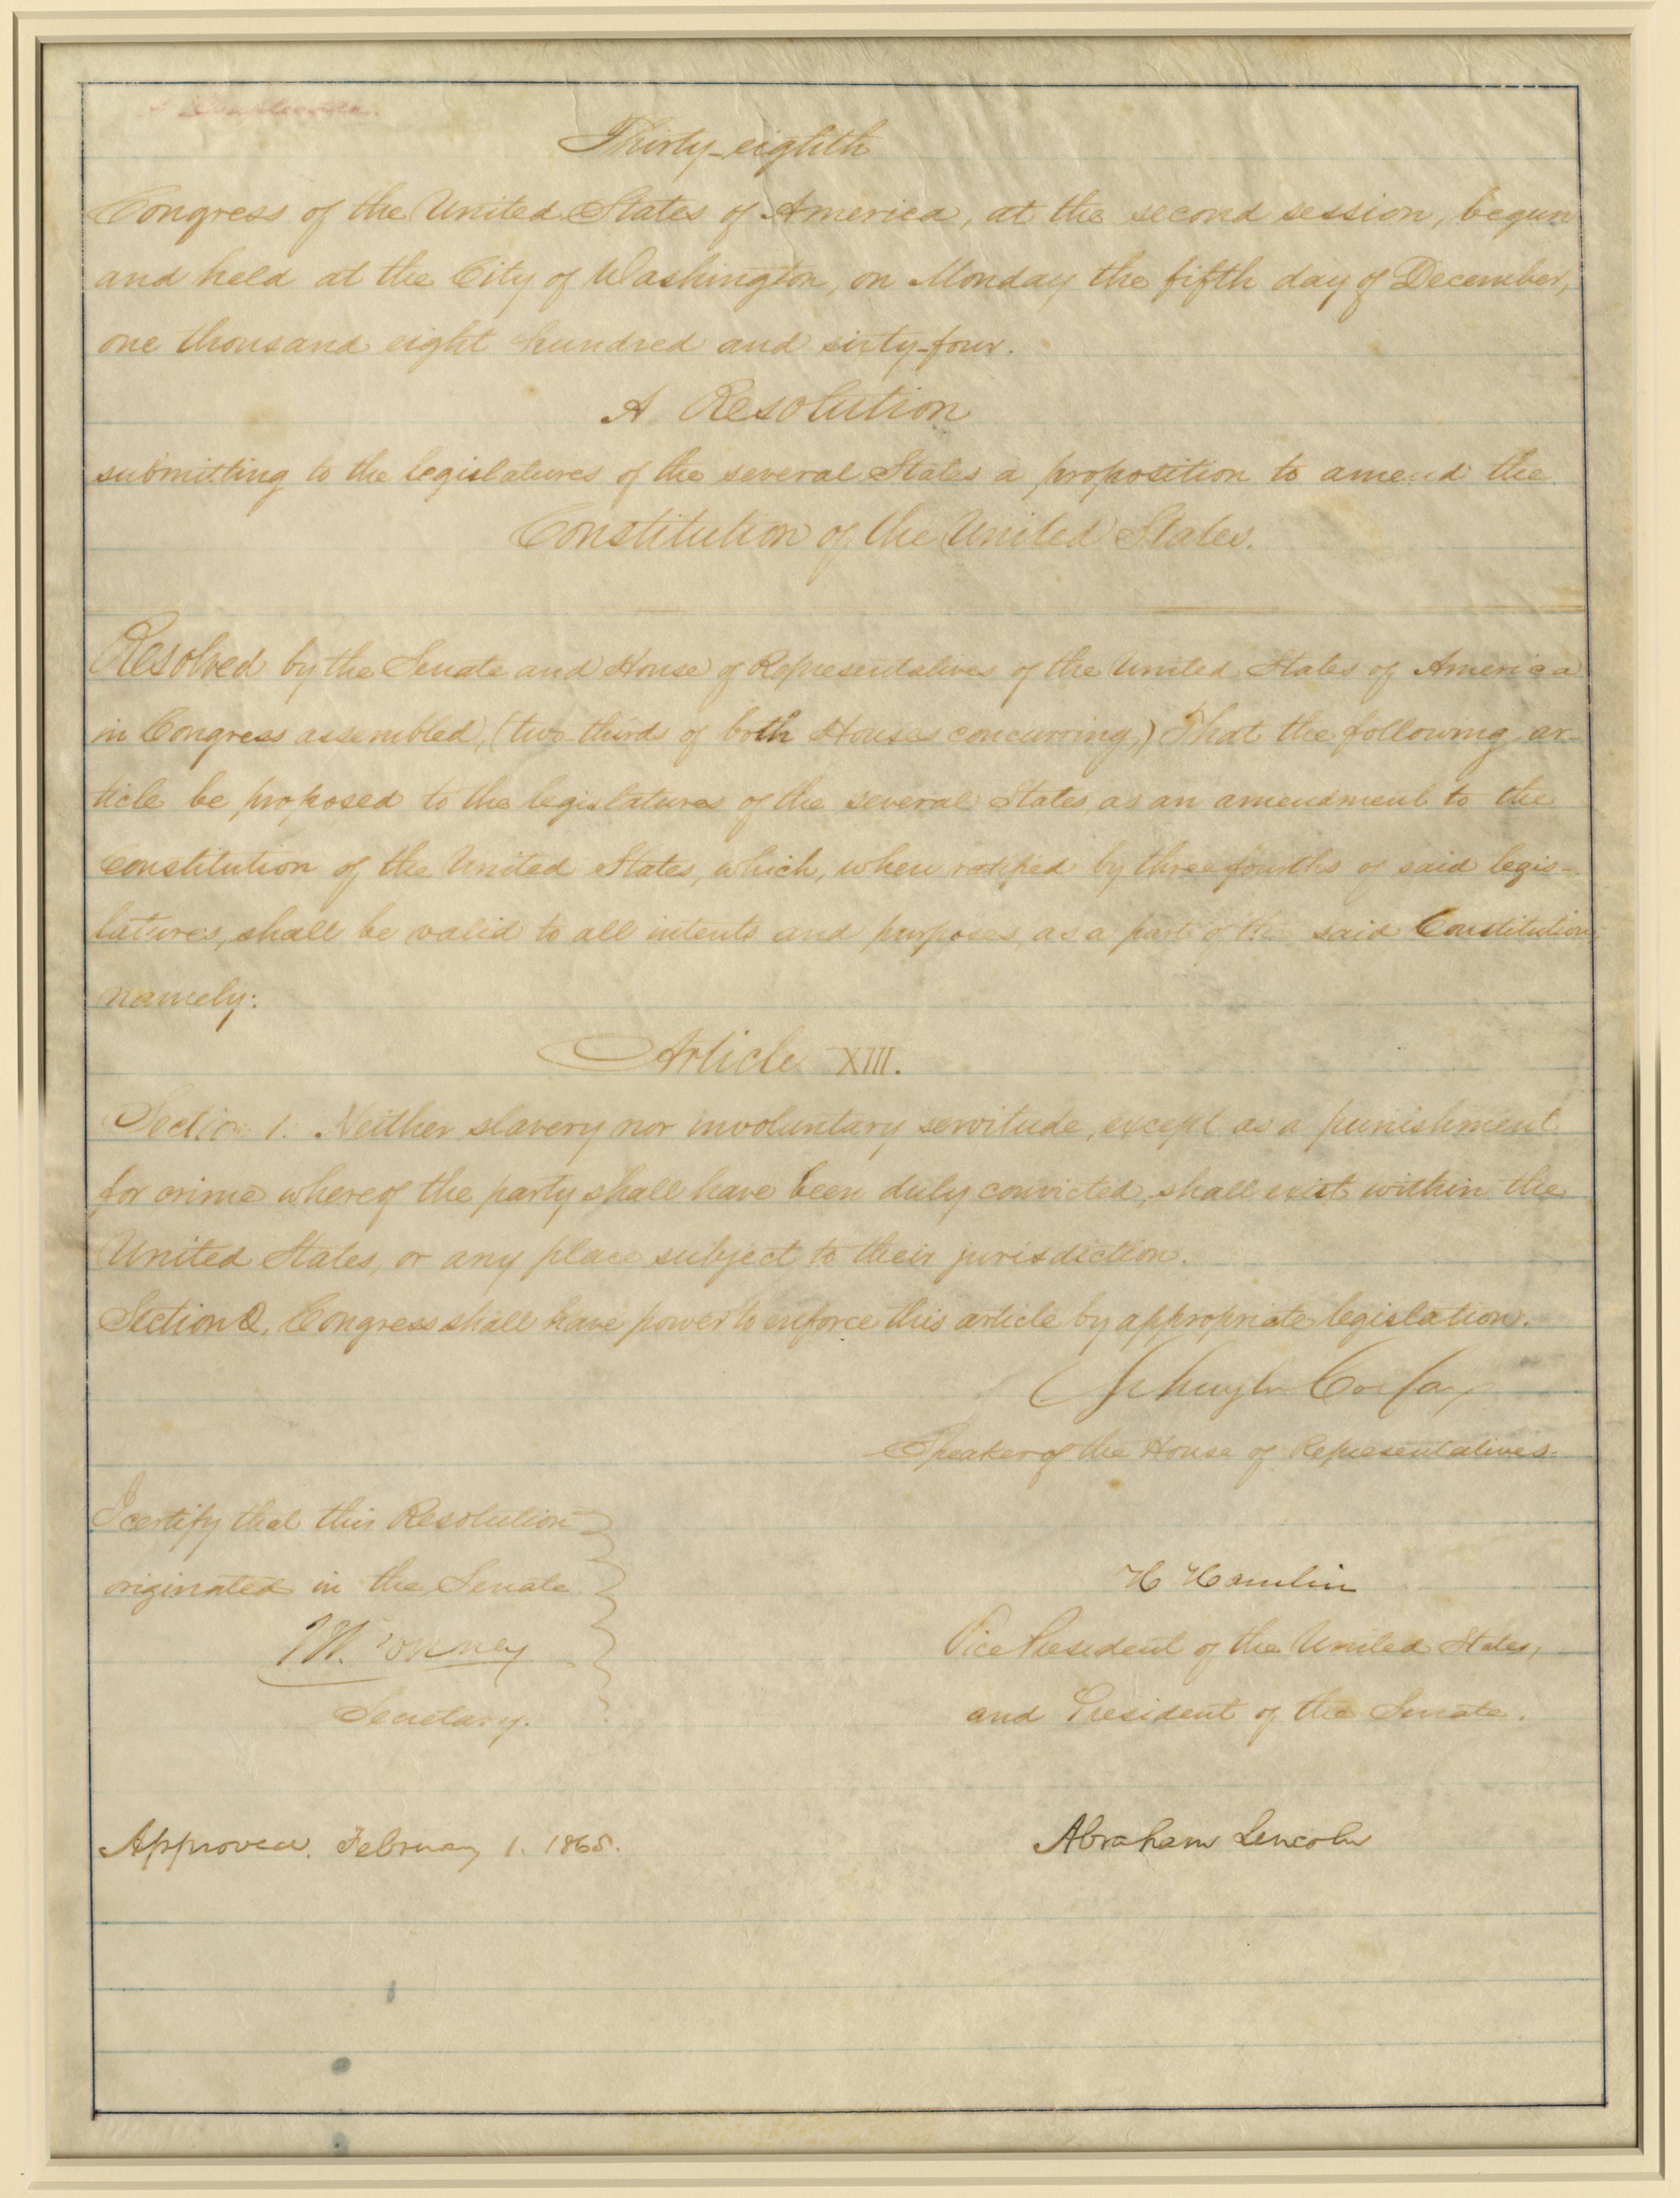 Thirty-eighth
Congress of the United States of America, at the second session, begun
and held at the City of Washington, on Monday the fifth day of December,
one thousand eight hundred and sixty-four.
A Resolution
submitting to the legislatures of the several States a proposition to amend the
Constitution of the United States.
Resolved by the Senate and House of Representatives of the United States of America
in Congress assembled, (two-thirds of both Houses concurring,) That the following ar-
ticle be proposed to the legislatures of the several States, as an amendment to the
Constitution of the United States, which, when ratified by three-fourths of said legis-
latures, shall be valid to all intents and purposes, as a part of the said Constitution,
namely:
Article XIII.
Section 1. Neither slavery nor involuntary servitude, except as a punishment
for crime whereof the party shall have been duly convicted, shall exist within the
United States, or any place subject to their jurisdiction.
Section 2. Congress shall have power to enforce this article by appropriate legislation.
Schuyler Colfax
Speaker of the House of Representatives.
I certify that this Resolution
originated in the Senate
H Hamlin
Secretary.
Vice President of the United States,
and President of the Senate.
Approved. February 1. 1865.
Abraham Lincoln